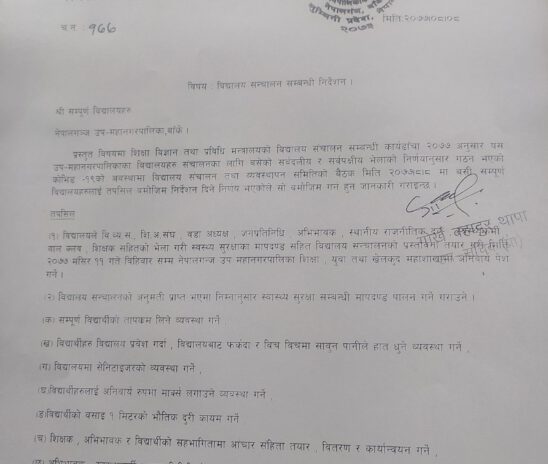 नेपालगन्ज, बाँके
लुम्बिनी प्रदेश, नेपाल
२०७३
च.नं. :९६६
मिति:२०७७।०८।०८
विषय : विद्यालय सन्चालन सम्बन्धी निर्देशन ।
श्री सम्पूर्ण विद्यालयहरु
नेपालगन्ज उप-महानगरपालिका,बाँके ।
प्रस्तुत विषयमा शिक्षा विज्ञान तथा प्रविधि मन्त्रालयको विद्यालय संचालन सम्बन्धी कार्यढाँचा २०७७ अनुसार यस
उप-महानगरपालिकाका विद्यालयहरु संचालनका लागि बसेको सर्वदलीय र सर्वपक्षीय भेलाको निर्णयानुसार गठन भएको
कोभिड -१९को अवस्थामा विद्यालय संचालन तथा व्यवस्थापन समितिको बैठक मिति २०७७।८।८ मा बसी सम्पूर्ण
विद्यालयहरुलाई तपसिल बमोजिम निर्देशन दिने निर्णय भएकोले सो बमोजिम गर्न हुन जानकारी गराइन्छ ।
तपसिल
(१) विद्यालयले वि.व्य.स., शि.अ.संघ , वडा अध्यक्ष , जनप्रतिनिधि , अभिभावक , स्थानीय राजनीतिक दल
बाल क्लब , शिक्षक सहितको भेला गरी स्वास्थ्य सुरक्षाका मापदण्ड सहित विद्यालय सन्चालनको प्रस्ताव तयार गरी मिति
२०७७ मंसिर ११ गते विहिवार सम्म नेपालगन्ज उप महानगरपालिका शिक्षा , युवा तथा खेलकुद महाशाखामा अनिवार्य पेश
गर्ने ।
(२) विद्यालय सन्चालनको अनुमती प्राप्त भएमा निम्नानुसार स्वास्थ्य सुरक्षा सम्बन्धी मापदण्ड पालन गर्ने गराउने ।
(क) सम्पूर्ण विद्यार्थीको तापक्रम लिने व्यवस्था गर्ने ,
(ख) विद्यार्थीहरु विद्यालय प्रवेश गर्दा , विद्यालयबाट फर्कदा र बिच बिचमा साबुन पानीले हात धुने व्यवस्था गर्ने ,
(ग) विद्यालयमा सेनिटाइजरको व्यवस्था गर्ने ,
(घ)विद्यार्थीहरुलाई अनिवार्य रुपमा मास्क लगाउने व्यवस्था गर्ने ,
(ङ)विद्यार्थीको बसाइ १ मिटरको भौतिक दुरी कायम गर्ने
(च) शिक्षक , अभिभावक र विद्यार्थीको सहभागितामा आचार संहिता तयार , वितरण र कार्यान्वयन गर्ने ,